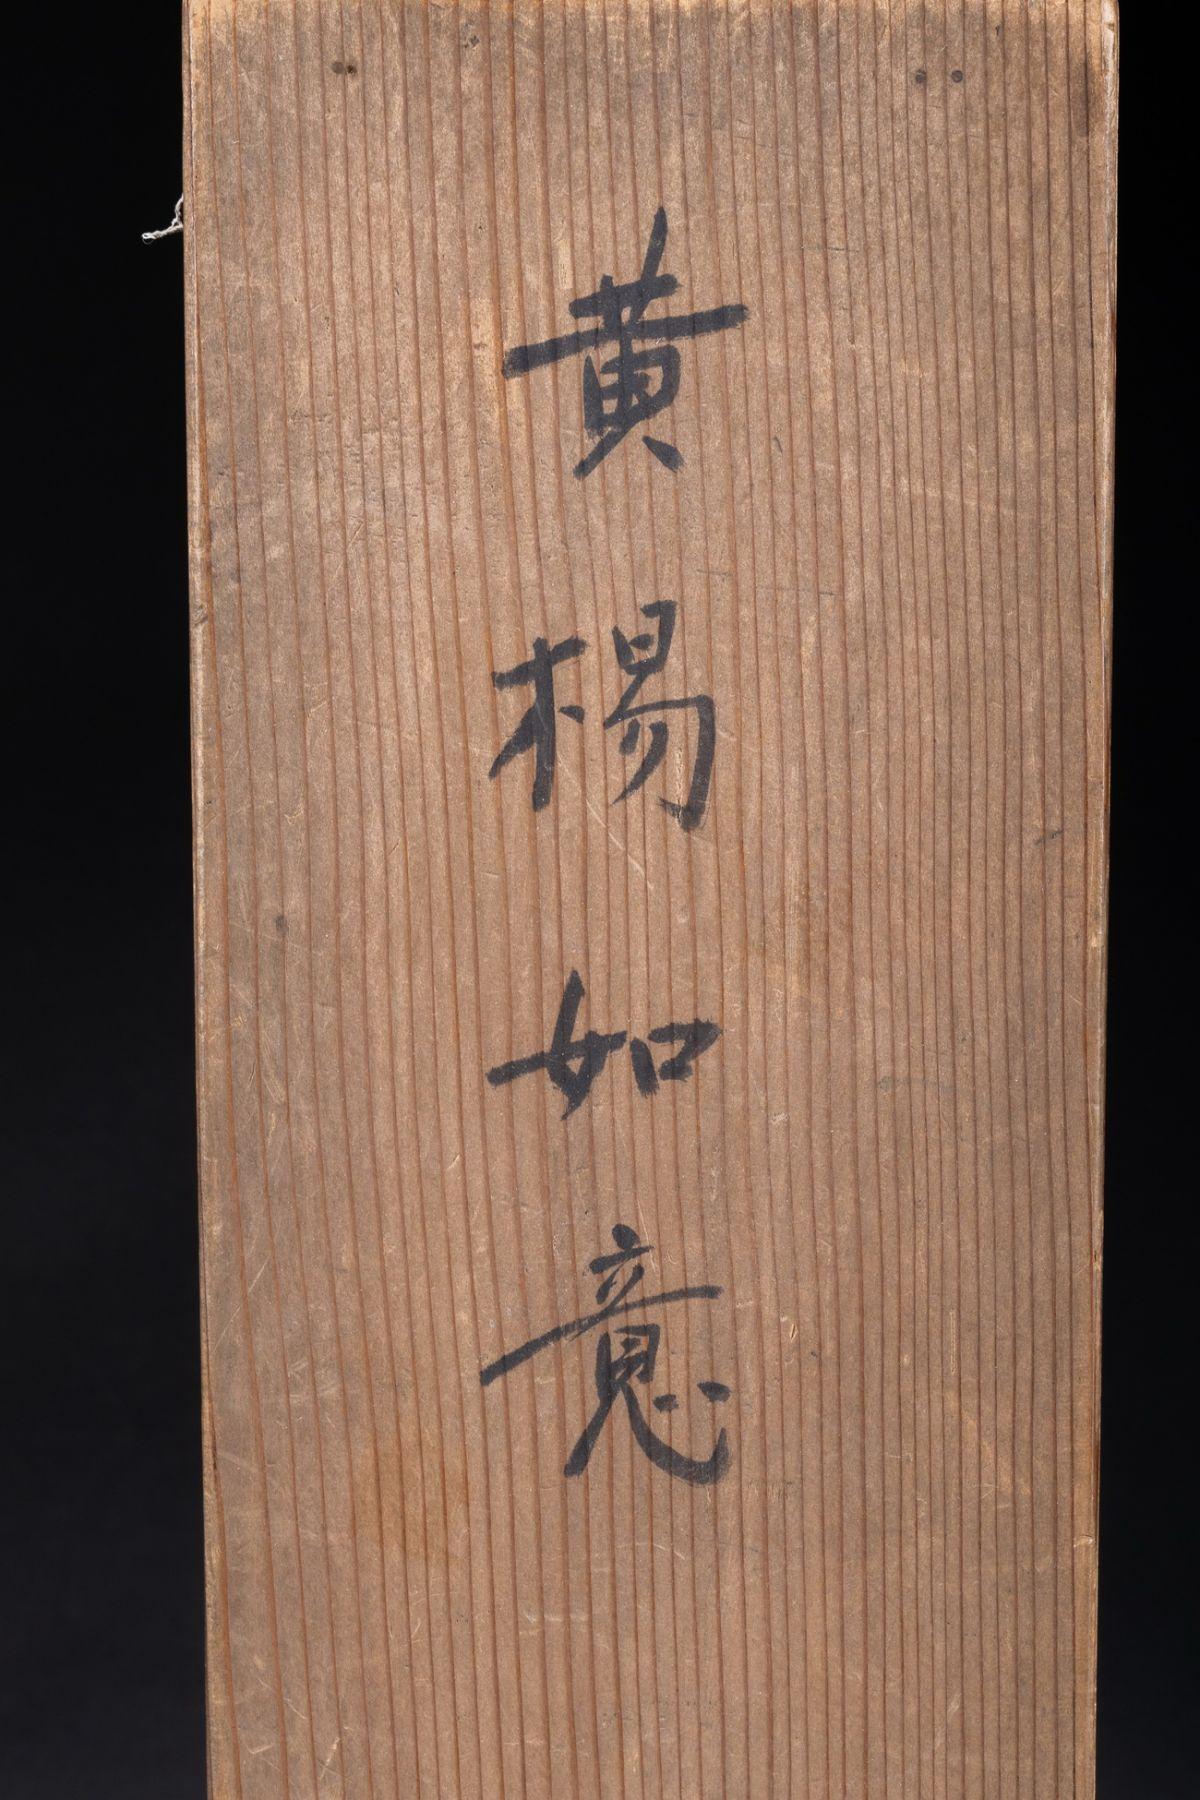 黄楊如意